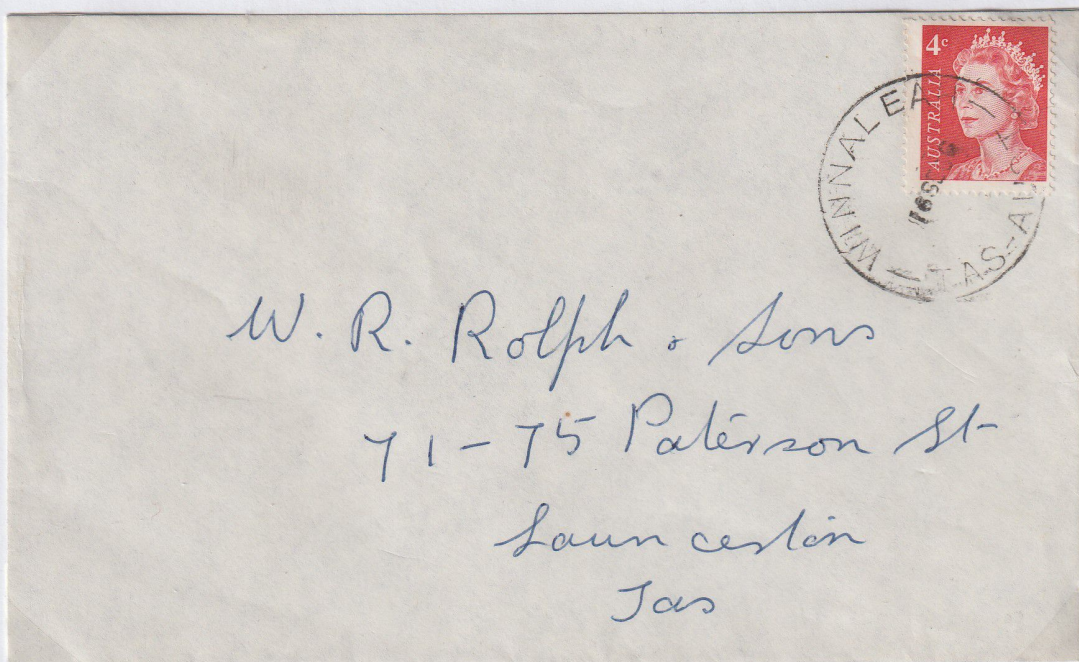 4c
AUSTRALIA
WINNALEAH
TAS-AUST
W. R. Rolph & Sons
71-75 Paterson St
Launceston
Tas